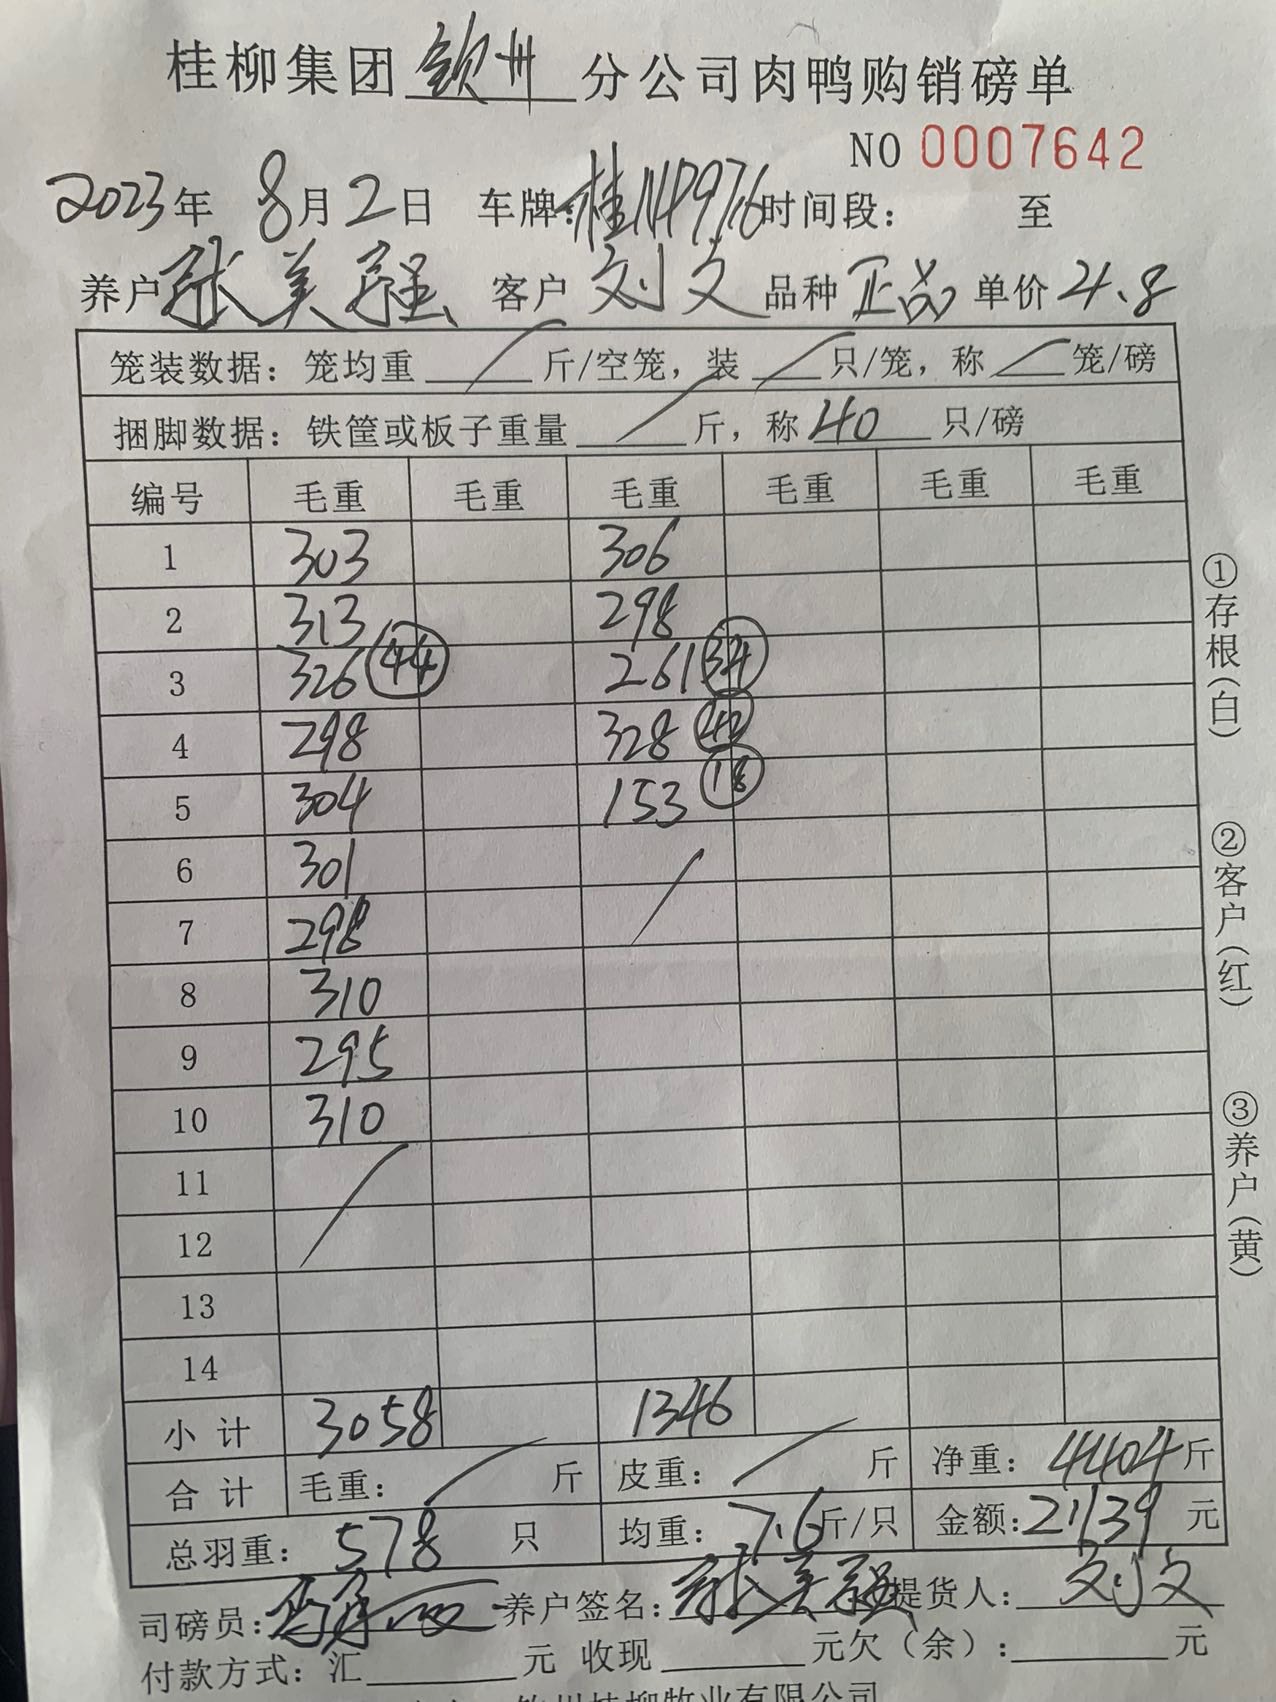 桂柳集团 钦州 分公司肉鸭购销磅单
NO 0007642
2023年 8月2日 车牌:桂NP976 时间段: 至
养户 张美强 客户 刘文 品种 正品 单价 4.8
笼装数据: 笼均重 / 斤/空笼, 装 / 只/笼, 称 / 笼/磅
捆脚数据: 铁筐或板子重量 / 斤, 称 40 只/磅
编号 毛重 毛重 毛重 毛重 毛重 毛重
1 303 306
2 313 298
3 326 44 261 34
4 298 328 42
5 304 153 18
6 301
7 298
8 310
9 295
10 310
11
12
13
14
小计 3058 1346
合计 毛重: / 斤 皮重: / 斤 净重: 4404 斤
总羽重: 578 只 均重: 7.6 斤/只 金额: 21139 元
司磅员: 养户签名: 张美强 提货人: 刘文
付款方式: 汇 元 收现 元欠(余): 元
钦州桂柳牧业有限公司
①存根(白)
②客户(红)
③养户(黄)